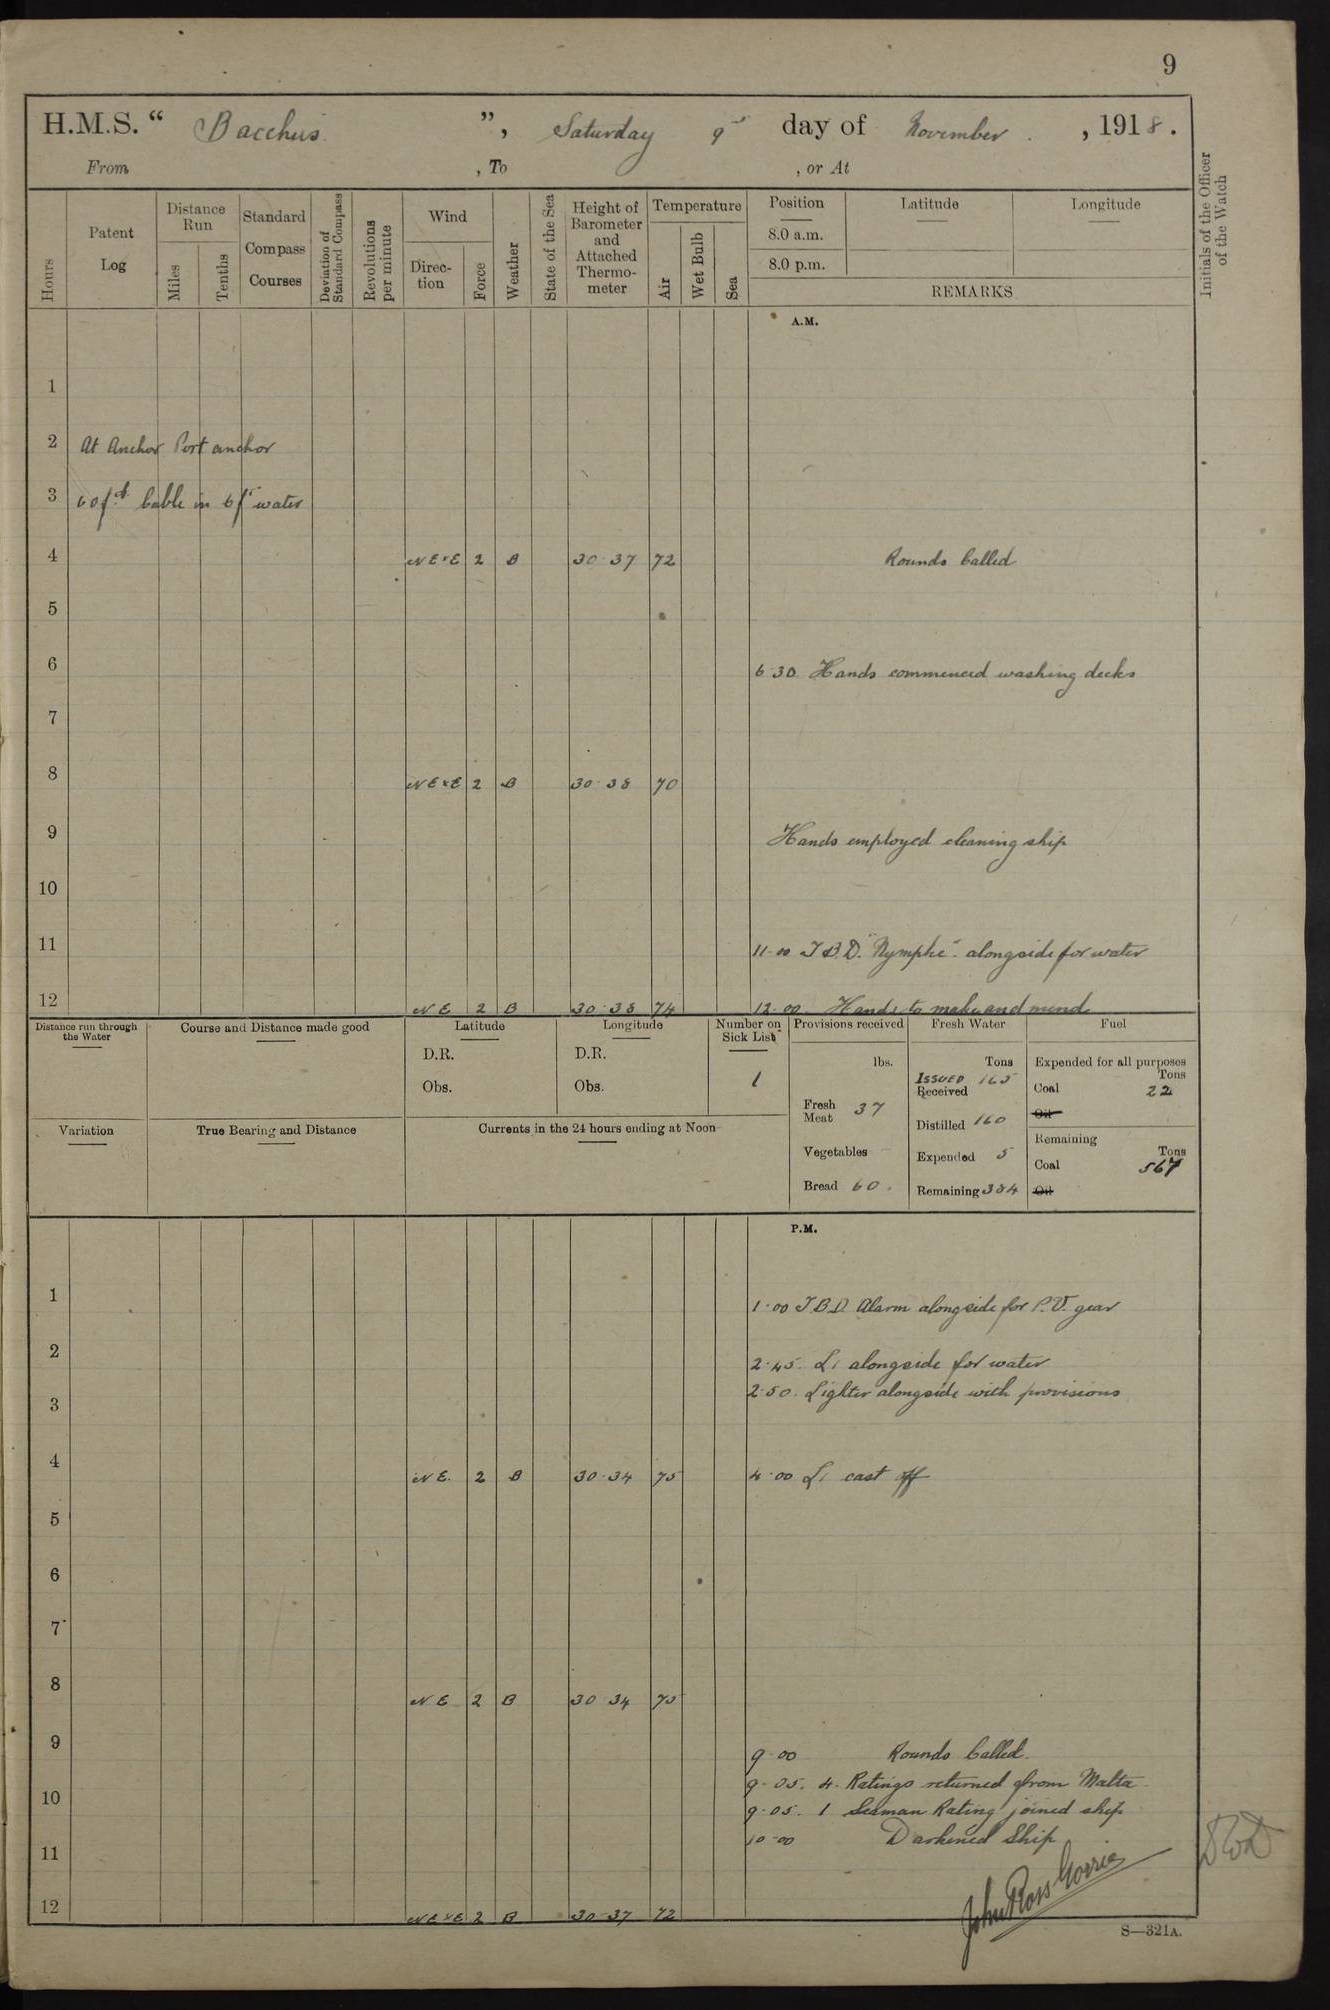 9
H.M.S. “ Bacchus ”, Saturday 9th day of November , 1918.
From , To , or At
Hours
Patent Log
Distance Run
Miles
Tenths
Standard Compass Courses
Deviation of Standard Compass
Revolutions per minute
Wind
Direc-tion
Force
Weather
State of the Sea
Height of Barometer and Attached Thermo-meter
Temperature
Air
Wet Bulb
Sea
Position
8.0 a.m.
8.0 p.m.
Latitude
Longitude
REMARKS
Initials of the Officer of the Watch
A.M.
1
2 At Anchor Port anchor
3 60 fth Cable in 6 fm water
4 NE×E 2 B 30·37 72 Rounds Called
5
6 6·30 Hands commenced washing decks
7
8 NE×E 2 B 30·38 70
9 Hands employed cleaning ship
10
11 11·00 T.B.D. "Nymphe". alongside for water
12 NE 2 B 30·38 74 12·00. Hands to make and mend
Distance run through the Water
Course and Distance made good
Latitude
D.R.
Obs.
Longitude
D.R.
Obs.
Number on Sick List
1
Provisions received
lbs.
Fresh Meat 37
Vegetables
Bread 60.
Fresh Water
Tons
Issued 165
Received
Distilled 160
Expended 5
Remaining 384
Fuel
Expended for all purposes
Tons
Coal 22
Oil
Remaining
Tons
Coal 567
Oil
Variation
True Bearing and Distance
Currents in the 24 hours ending at Noon
P.M.
1 1·00 T.B.D. Alarm alongside for P.V. gear
2 2·45. L1 alongside for water
2·50. Lighter alongside with provisions
3
4 NE. 2 B 30·34 75 4·00 L1 cast off
5
6
7
8 NE 2 B 30 34 75
9 9·00 Rounds Called.
9·05. 4. Ratings returned from Malta
10 9·05. 1 Seaman Rating joined ship
10·00 Darkened Ship
11
John Ross Gorrie
12 NE×E 2 B 30·37 72
S—321A.